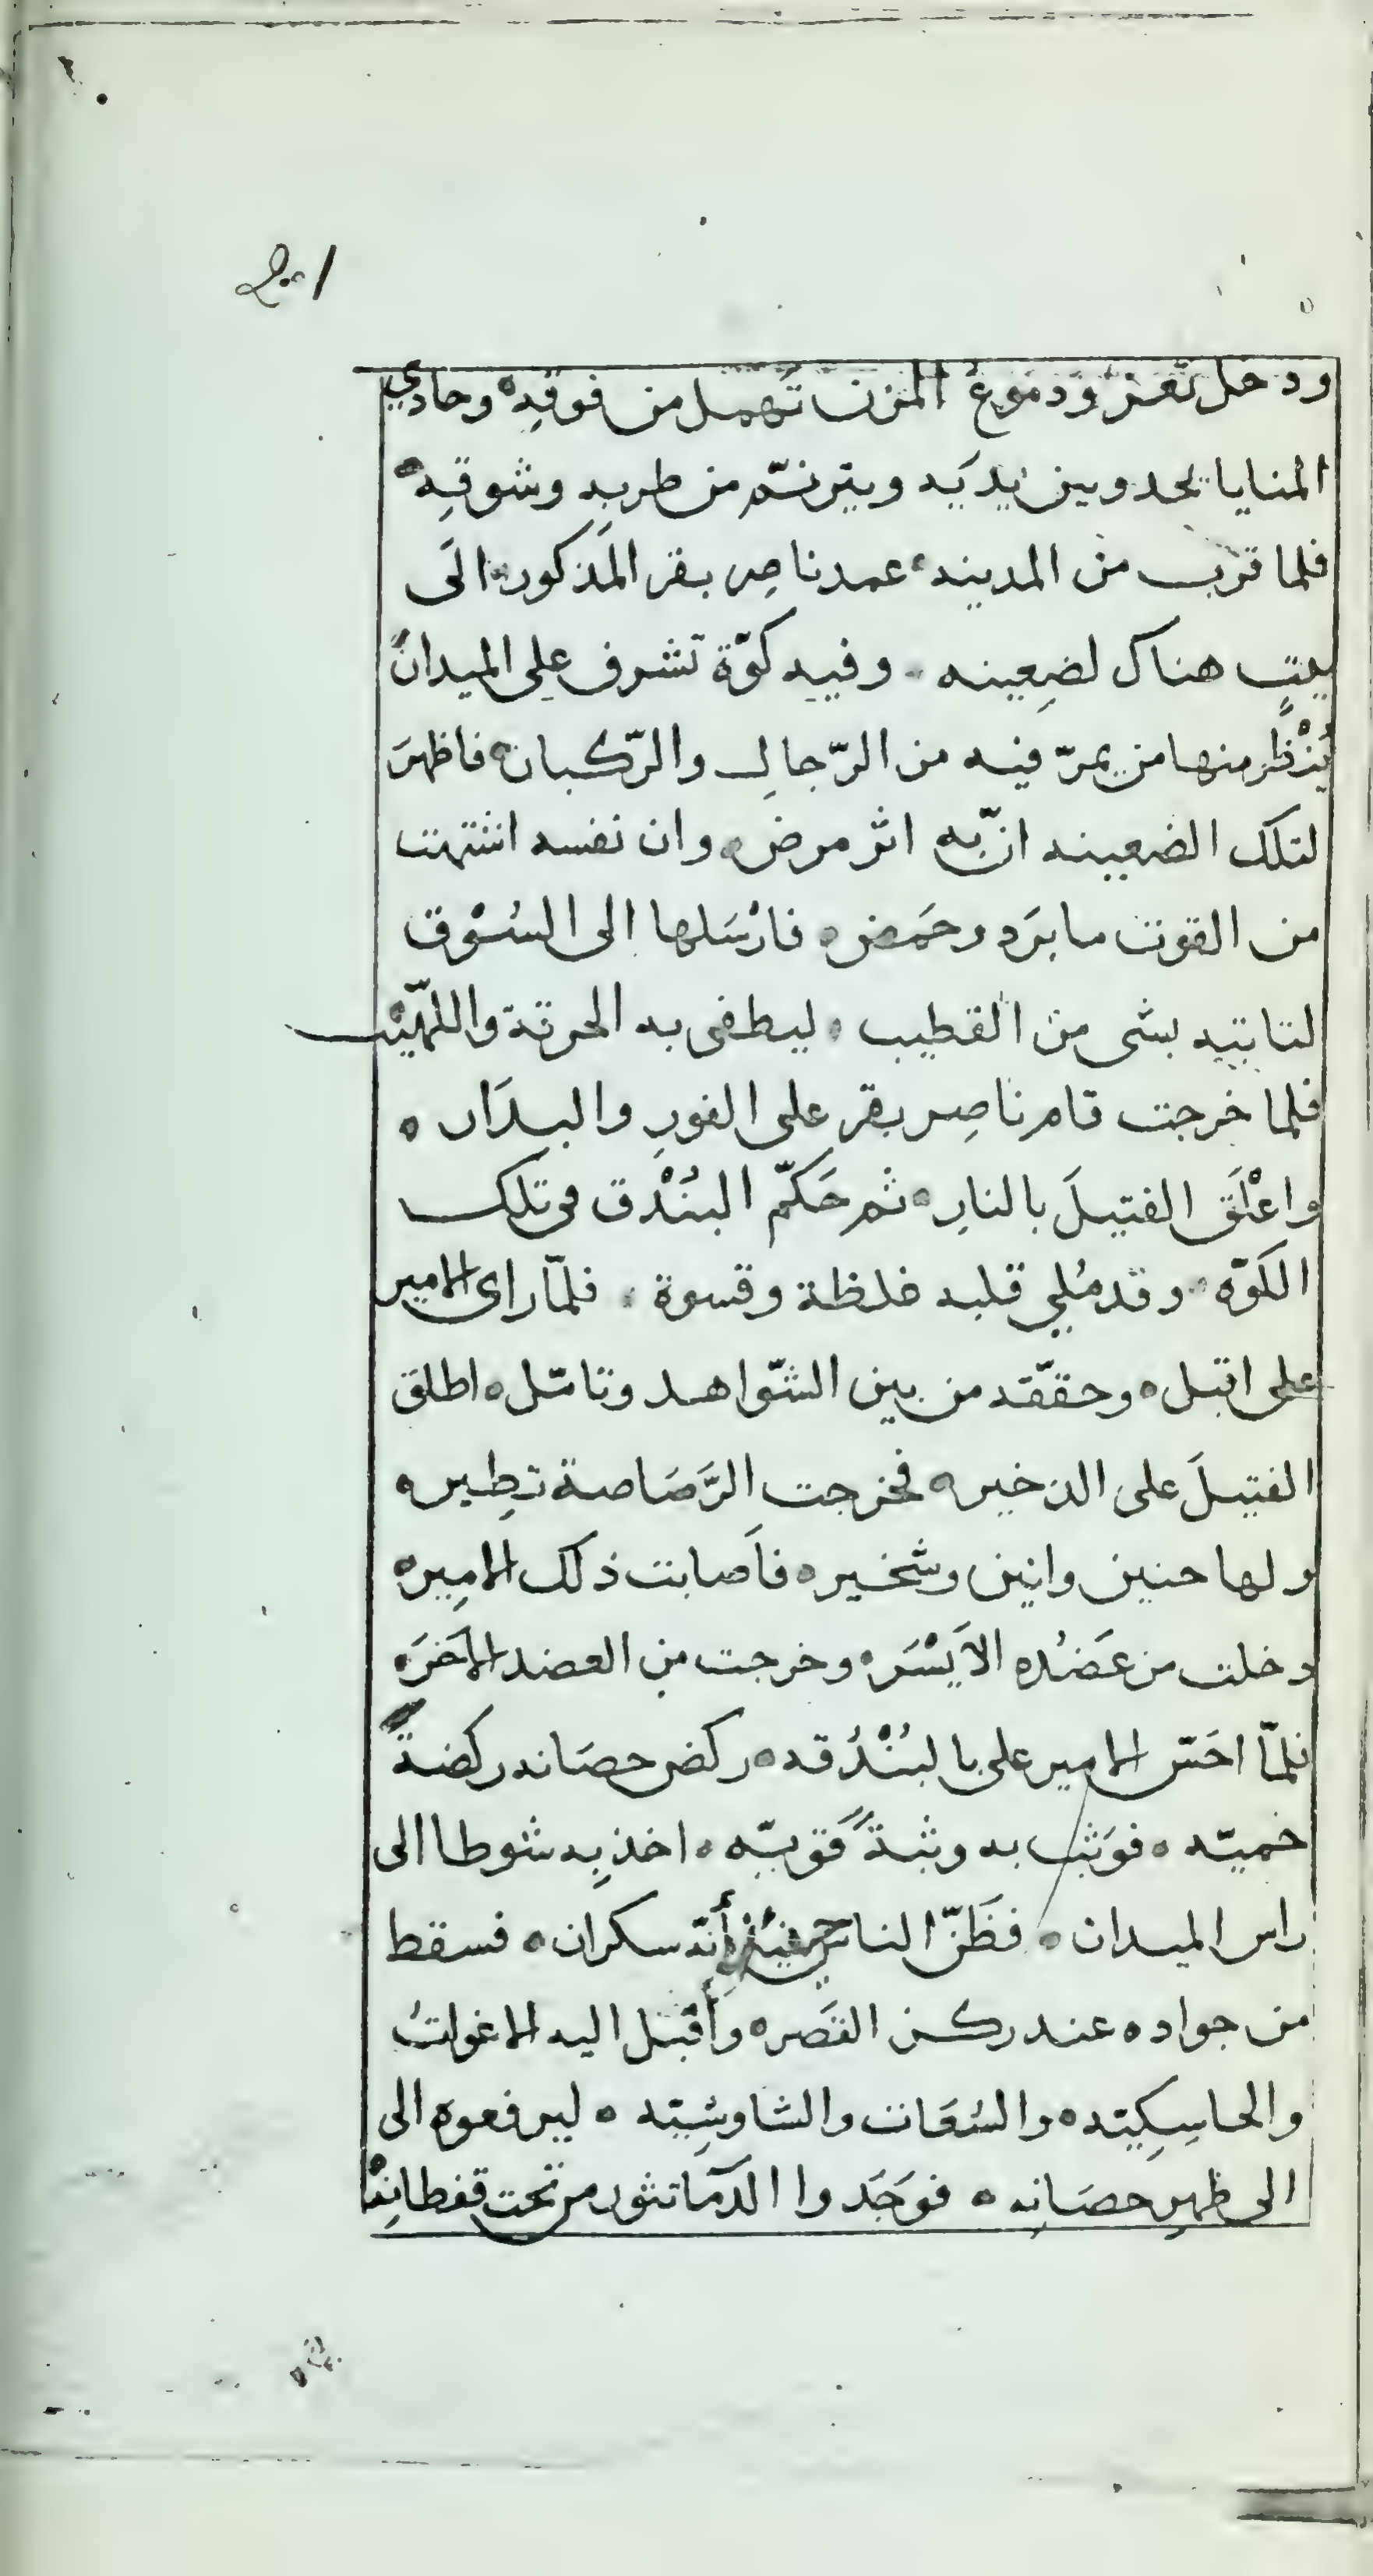 ودخل تعز ودموع المزن تهمل من فوقه وحادي
المنايا يحدو بين يديه ويترنّم من طربه وشوقه
فلما قرب من المدينه عمد ناصر بقر المذكور الى
بيتٍ هناك لضعينه وفيه كوّة تشرف على الميدان
يُنْظر منها من يمرّ فيه من الرّجال والرّكبان فاظهرَ
لتلك الضعينه انّ به اثر مرض وان نفسه اشتهت
من القوت ما برَد وحَمض فارْسَلها الى السُوْق
لتاتيه بشى من القطيب ليطفى به الحرقة واللّهيْب
فلما خرجت قام ناصر بقر على الفورِ والبدَار
واعْلَق الفتيلَ بالنارِ ثم حَكّم البنْدق فى تلك
الكوّه وقد مُلي قلبه غلظة وقسوة فلمّا راى الامير
على اقبل وحقّقه من بين الشّواهد وتامّل اطلق
الفتيلَ على الذخير فخرجت الرَّصَاصة تطير
ولها حنين وانين وشخير فاَصابت ذلك الامير
دخلت من عَضُده الاَيْسَر وخرجت من العضد الاَخَر
فلمّا احَسّ الامير على بالبُنْدُقه ركض حصَانه ركضةً
حميّه فوَثب به وثبةً قويّه اخذ به شوطا الى
راس الميدان فظَنّ الناس أنّه سكران فسقط
من جواده عند ركن القَصر وأقبل اليه الاغوات
والحاسكيّه والسُعَات والشاوشيّه ليرفعوه الى
الى ظهر حصَانه فوَجَدوا الدّما تثور من تحت قفطانه